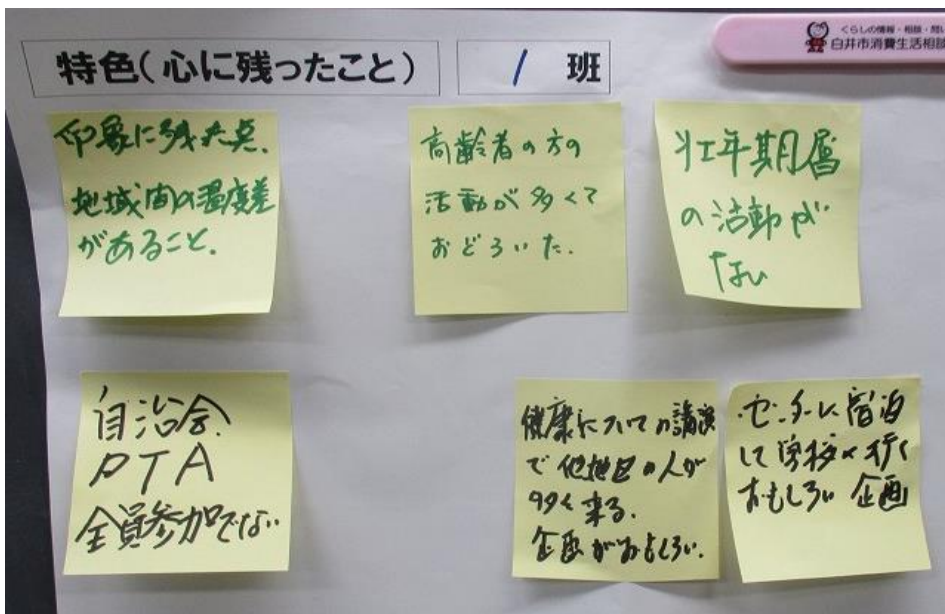 くらしの情報・相談・問い
白井市消費生活相談
特色(心に残ったこと)
1 班
印象に残った点、
地域間の温度差
があること。
高齢者の方の
活動が多くて
おどろいた。
壮年期層
の活動が
ない
自治会、
PTA
全員参加でない
健康についての講演
で他地区の人が
多く来る。
企画がおもしろい。
・センターに宿泊
して学校へ行く
おもしろい企画